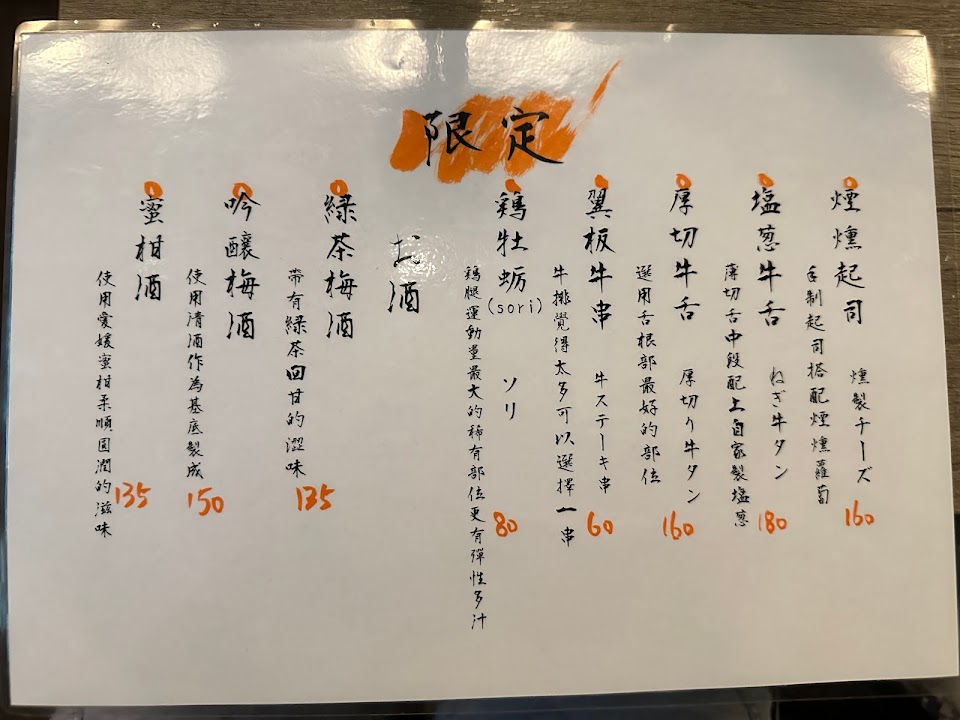 限定
煙燻起司 燻製チーズ 160
舌制起司搭配煙燻蘿蔔
塩葱牛舌 ねぎ牛タン 180
薄切舌中段配上自家製塩葱
厚切牛舌 厚切り牛タン 160
選用舌根部最好的部位
翼板牛串 牛ステーキ串 60
牛排覺得太多可以選擇一串
鶏牡蛎(sori) ソリ 80
鶏腿運動量最大的稀有部位更有彈性多汁
お酒
緑茶梅酒 135
帶有緑茶回甘的澀味
吟釀梅酒 150
使用清酒作為基底製成
蜜柑酒 135
使用愛媛蜜柑柔順圓潤的滋味